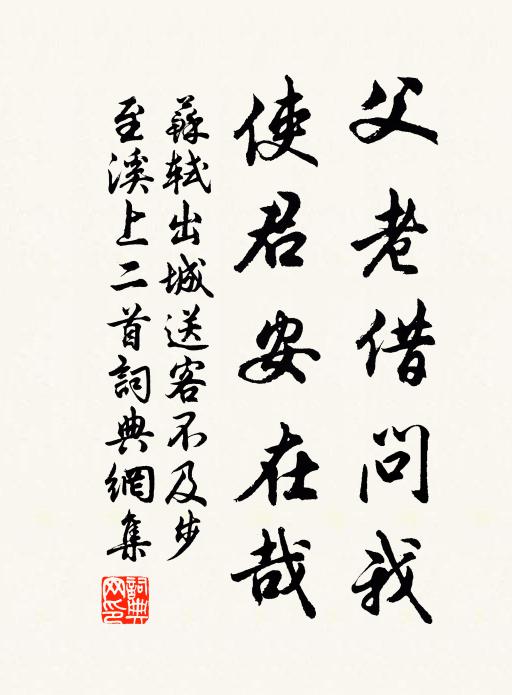 父老借问我
使君安在哉
蘇軾出城送客不及步
至溪上二首詞典網集
詞典
网印